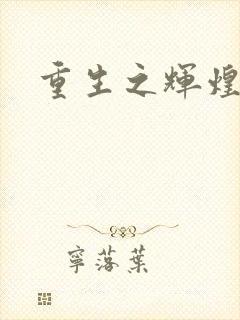 重生之輝煌
寧落葉